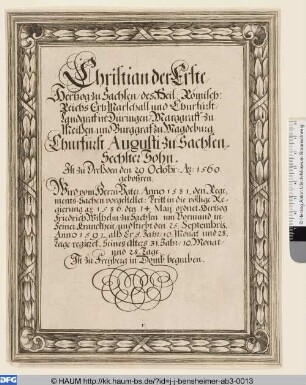 Christian der Erste
Hertzog zu Sachsen/ des Heil. Römisch:
Reichs ErtzMarschall und Churfürst,
Landgraf in Düringen/ Marggraff zu
Meißen und Burggraf zu Magdeburg
Churfürst Augusti zu Sachsen
Sechster Sohn.
Ist zu Dreßden den 29 Octobr: Aō: 1560
gebohren.
Wird vom Herrn Vater Anno 1581, den Regi-
ments-Sachen vorgestellet: Tritt in die völlige Re-
gierung aō: 1586. den 14 Maij ordnet Hertzog
Friedrich Wilhelm zu Sachsen um Vormund in
seiner Kranckheit, und stirbt den 25. Septembris,
Anno 1591, alß Er 5. Jahr/ 10. Monat und 28.
Tage regieret. Seines Alters 31. Jahr/ 10. Monat
und 28 Tage.
Ist zu Freyberg in Domb begraben.
© HAUM http://kk.haum-bs.de/?id=j-j-bensheimer-ab3-0013
DFG